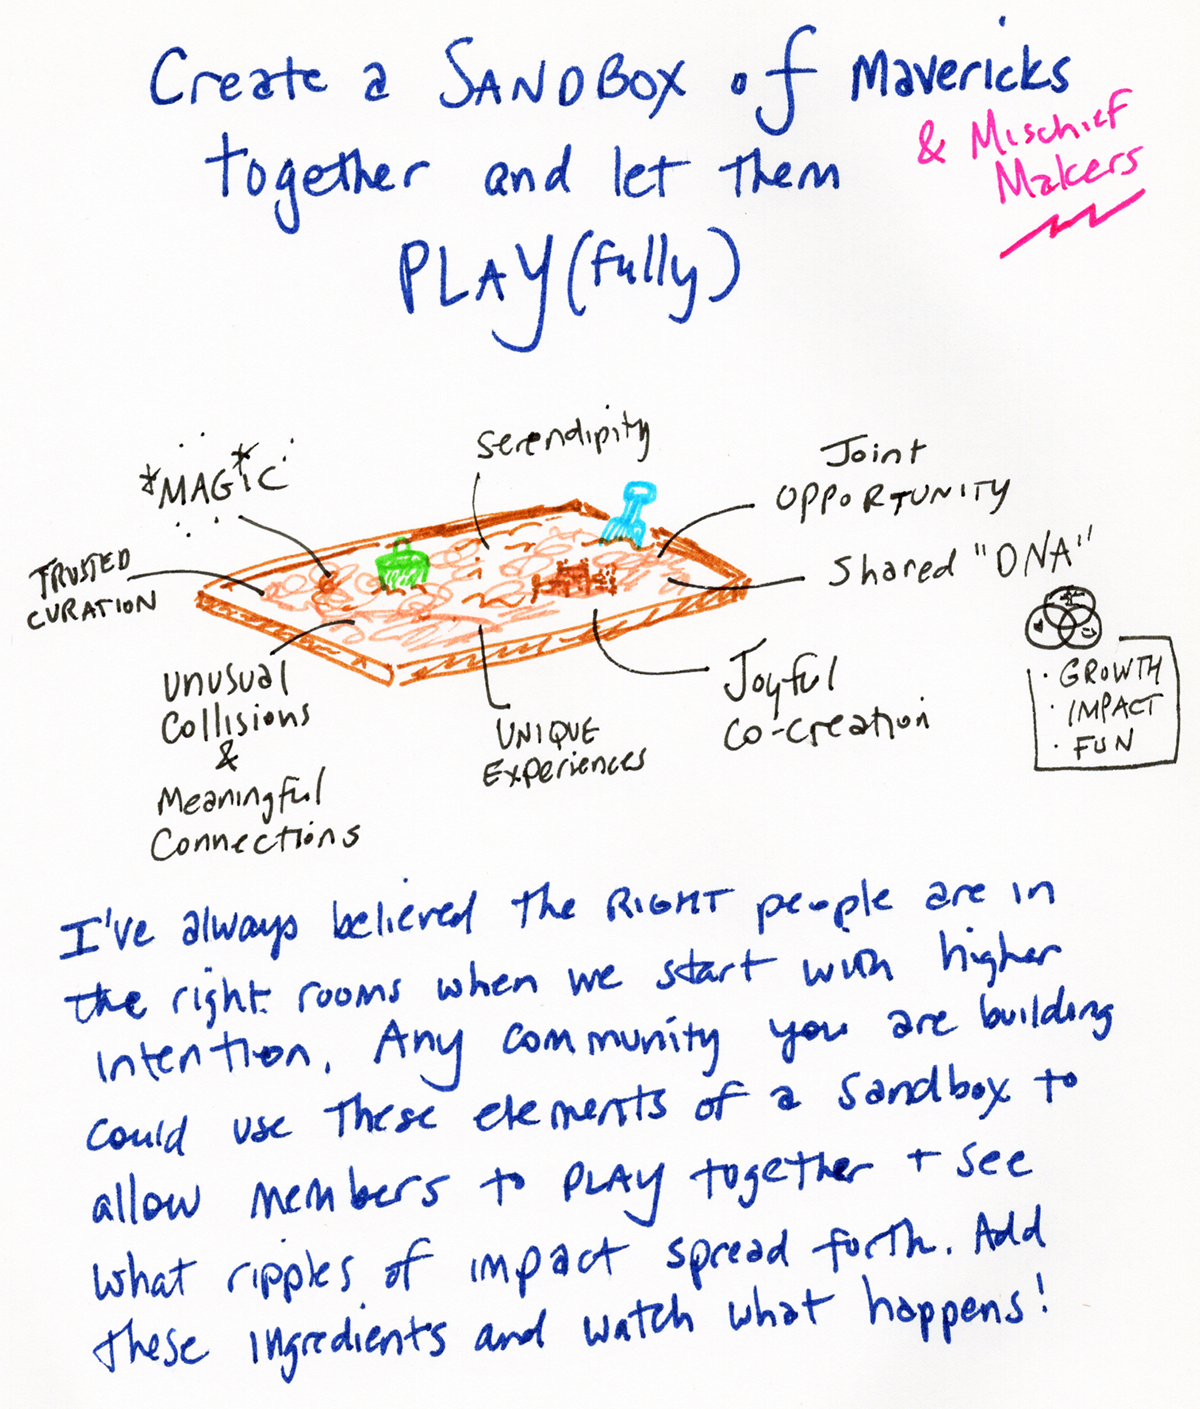 Create a SANDBOX of Mavericks
& Mischief
Makers
together and let them
PLAY (fully)
Serendipity
*MAGIC*
Joint
OPPORTUNITY
TRUSTED
CURATION
Shared "DNA"
UNUSUAL
Collisions
&
Meaningful
Connections
UNIQUE
Experiences
Joyful
Co-creation
· GROWTH
· IMPACT
· FUN
I've always believed the RIGHT people are in
the right rooms when we start with higher
intention. Any community you are building
could use these elements of a sandbox to
allow members to PLAY together + see
what ripples of impact spread forth. Add
these ingredients and watch what happens!